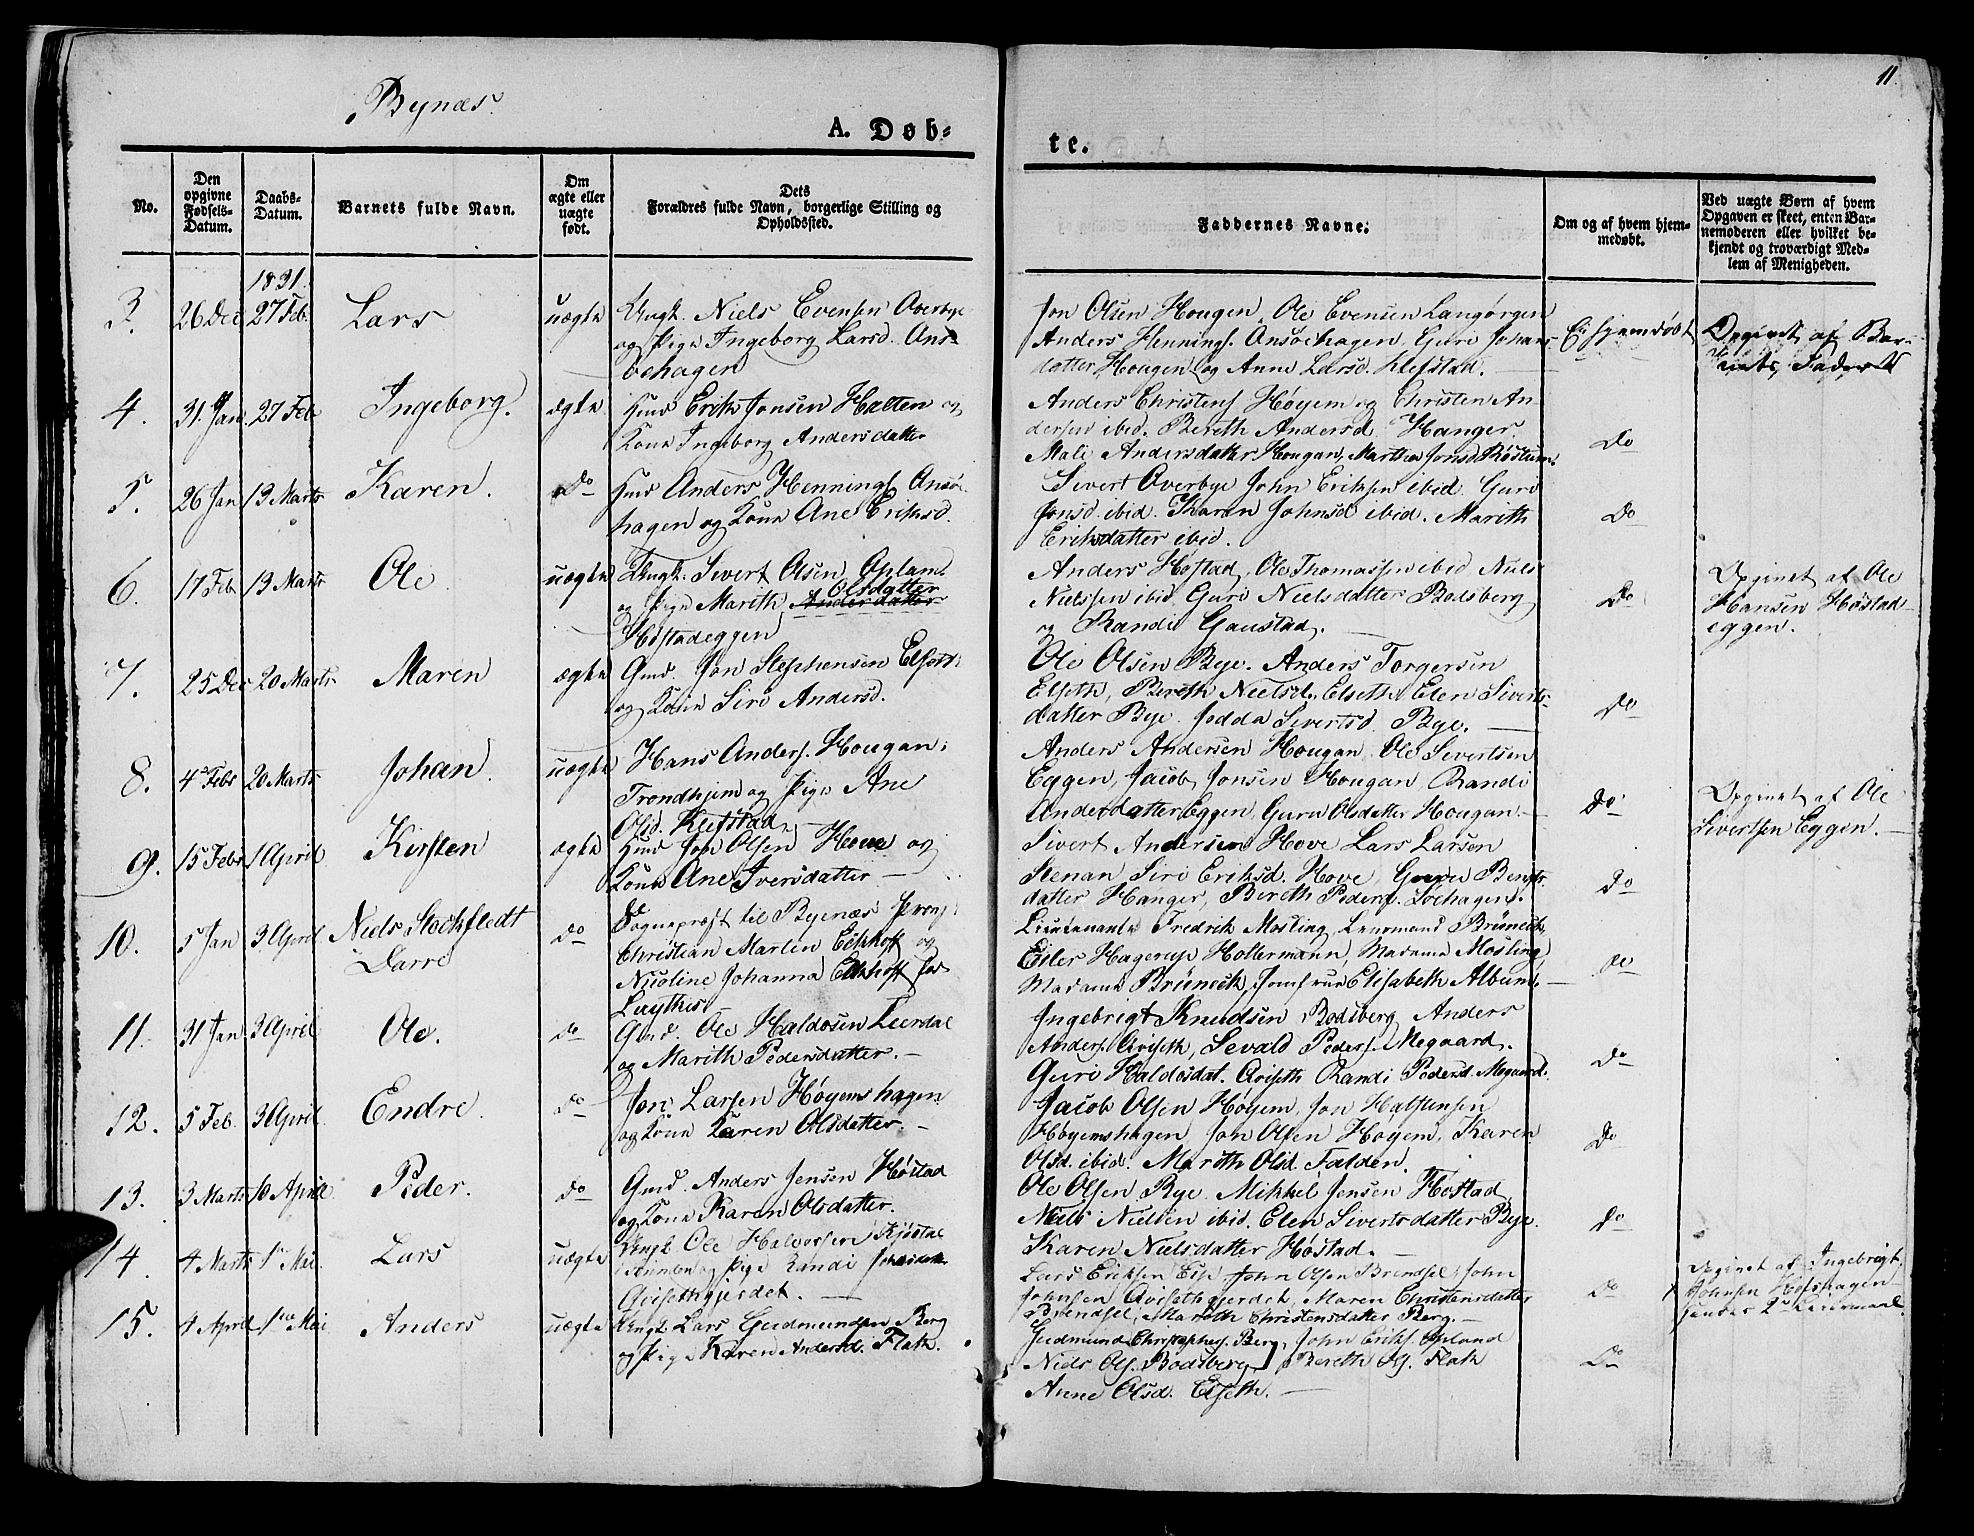 Bynæs.
11.
A. Døb-
te.
No.
Den opgivne Fødsels-Datum.
Daabs-Datum.
Barnets fulde Navn.
Om ægte eller uægte født.
Dets Forældres fulde Navn, borgerlige Stilling og Opholdssted.
Faddernes Navne.
Om og af hvem hjemmedøbt.
Ved uægte Børn af hvem Opgaven er skeet, enten Barnemoderen eller hvilket bekjendt og troværdigt Medlem af Menigheden.
1831.
3. 26 Dec 27 Feb. Lars uægte Ungk. Niels Evensen Overbye
og Pige Ingeborg Larsd. Ans-
øehagen
Jon Olsen Hougen, Ole Evensen Langørgen
Anders Hennings. Ansøehagen, Guri Johans
datter Hougen og Anne Larsd. Klefstad.
Ei hjemdøbt
Opgivet af Bar-
nets Fader
4. 31. Jan 27 Feb Ingeborg. ægte Gmd Erik Jonsen Halten og
Kone Ingeborg Andersdatter
Anders Christens. Høyem og Christen An-
dersen ibid. Bereth Andersd Hanger.
Mali Andersdatter Hougan, Martha Jonsd Røstum.
Do
5. 26 Jan 13 Marts Karen. Do Gmd Anders Hennings. Ansøe
hagen og Kone Ane Eriksd.
Sivert Overbye John Eriksen ibid. Guri
Jonsd. ibid. Karen Johnsd ibid. Marith
Eriksdatter ibid.
Do
6. 17 Feb 13 Marts Ole uægte Ungk. Sivert Olsen Opland
og Pige Marith Andersdatter Olsdatter
Høstadeggen
Anders Høstad, Ole Thomassen ibid Niels
Nielssen ibid. Guri Nielsdatter Bodsberg
og Randi Gaustad.
Do
Opgivet af Ole
Hansen Høstad-
eggen.
7. 25 Dec 20 Marts Maren ægte Gmd. Jon Stephensen Elseth
og Kone Siri Andersd.
Ole Olsen Bye. Anders Torgersen
Elseth, Bereth Nielsd. Elseth Elen Siverts-
datter Bye. Jodda Sivertsd. Bye.
Do
8. 4 Feb 20 Marts Johan. uægte Hans Anders. Hougan i
Trondhjem og Pige Ane
Olsd. Klefstad
Anders Andersen Hougan, Ole Sivertsen
Eggen, Jacob Jonsen Hougan, Randi
Andersdatter Eggen, Guru Olsdatter Hougan.
Do
Opgivet af Ole
Sivertsen Eggen.
9. 15 Feb 1 April Kirsten ægte Gmd Jon Olsen Hove og
Kone Ane Iversdatter
Sivert Andersen Hove Lars Larsen
Stenan, Siri Eriksd. Hove, Guru Bengts
datter Hanger, Bereth Peders.
Do
10. 5 Jan 3 April Niels Stockfledt
Darre
Do Sognepræst til Byenæs Provst
Christian Martin Eckhoff og
Nicoline Johanna Eckhoff
Lieutenante Fredrik Mosling, Lensmand Brüneck,
Eiler Hagerup Holtermann, Madame Mosling,
Madame Brünech, Jomfrue Elisabeth Album.
do
11. 31 Jan 3 April Ole. Do Gmd. Ole Haldosen Leerdal
og Marith Pedersdatter.
Ingebrigt Knudsen Bodsberg, Anders
Anders. Aviseth, Sevald Peders. Megaard.
Guri Haldosdat. Aviseth Randi Pedersd. Megaard.
Do
12. 5 Feb. 3 April Endre. Do Jon Larsen Høyemshagen
og Kone Karen Olsdatter.
Jacob Olsen Høyem, Jon Halstensen
Høyemshagen, Jon Olsen Høyem, Karen
Olsd. ibid. Marith Olsd. Falden.
Do
13. 3 Marts 10 April Peder. Do Gmd. Anders Jensen Høstad
og Kone Karen Olsdatter.
Ole Olsen Bye. Mikkel Jensen Høstad,
Niels Nielsen ibid. Elen Sivertsdatter Bye.
Karen Nielsdatter Høstad.
Do
14. 4 Marts 1 Mai. Lars uægte Ungk Ole Halvorsen
og Pige Randi
Avisethgjerdet.
Lars Eriksen John Olsen Brendsel, John
Johnsen Avisethgjerdet, Maren Christensdatter
Brendsel, Marith Christensdatter Berg.
Do
Opgivet af Ingebrigt
Johnsen
15. 4 April 1 Mai Anders uægte Ungk Lars Gudmundsen Berg
og Pige Karen Andersd. Flath.
Gudmund Christophers. Berg, John Eriks. Opland
Niels Ols. Bodsberg, Bereth Flath
Anne Olsd. Elseth.
Do